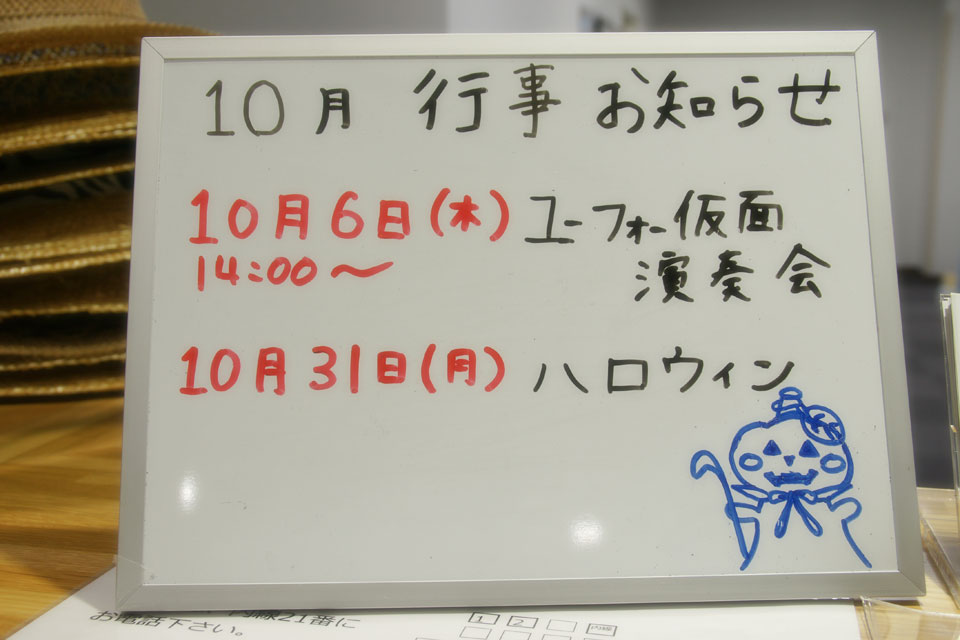 10月 行事 お知らせ
10月6日(木) ユーフォー仮面
14:00〜 演奏会
10月31日(月) ハロウィン
内線21番に
お電話下さい。
1 2 内線